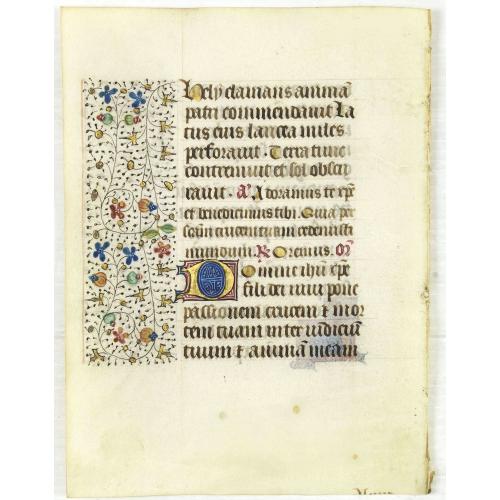 hely clamans animā
patri commendauit La
tus eius lancea miles
perforauit . Terra tunc
contremuit et sol obscu
rauit . a᷎ Adoramus te xp̄e
et benedicimus tibi . Quia per
crucem tuam redemisti
mundum . R Oremus . Or̄
Domine ihū xp̄e
fili dei uiui pone
passionem crucem & mor
tem tuam inter iudiciū
tuum & animā meam